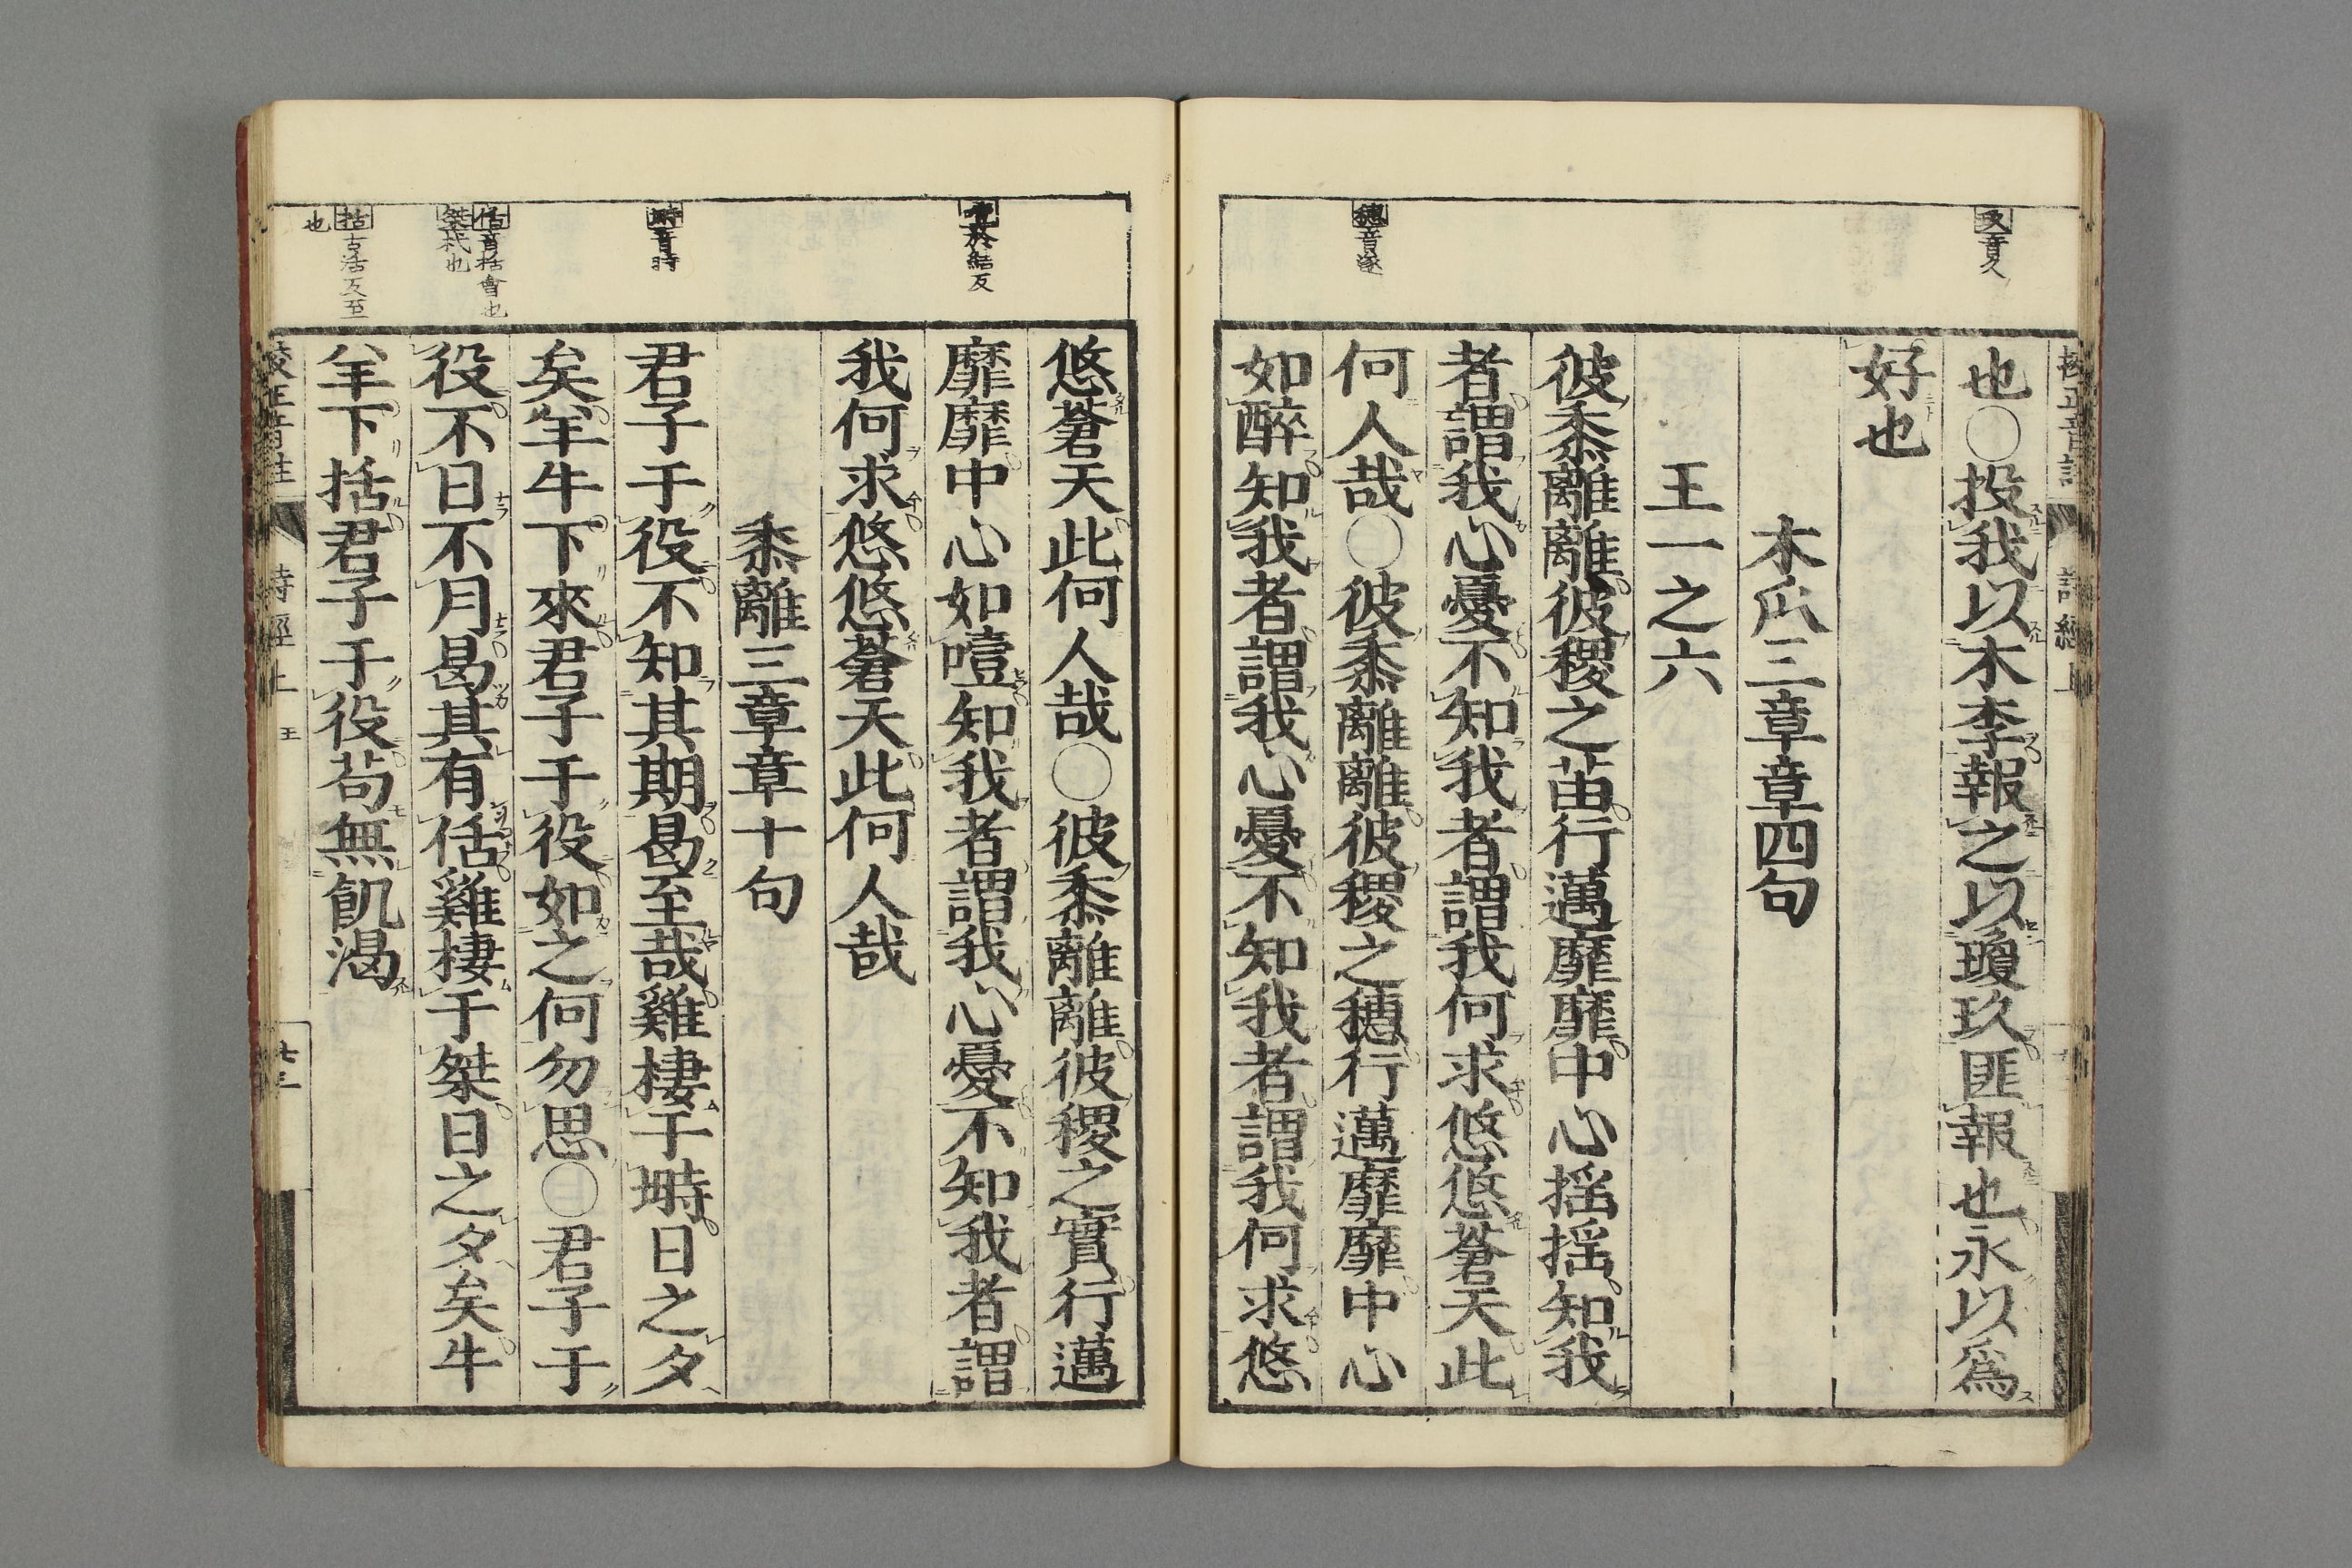 玖音久
穗音遂
也○投我以木李報之以瓊玖匪報也永以爲
好也
木瓜三章章四句
王一之六
彼黍離離彼稷之苗行邁靡靡中心揺揺知我
者謂我心憂不知我者謂我何求悠悠蒼天此
何人哉○彼黍離離彼稷之穗行邁靡靡中心
如醉知我者謂我心憂不知我者謂我何求悠
於結反
塒音時
佸音括會也
桀杙也
括古活反至
也
悠蒼天此何人哉○彼黍離離彼稷之實行邁
靡靡中心如噎知我者謂我心憂不知我者謂
我何求悠悠蒼天此何人哉
黍離三章章十句
君子于役不知其期曷至哉雞棲于塒日之夕
矣羊牛下來君子于役如之何勿思○君子于
役不日不月曷其有佸雞棲于桀日之夕矣牛
羊下括君子于役苟無飢渴
詩經上 王